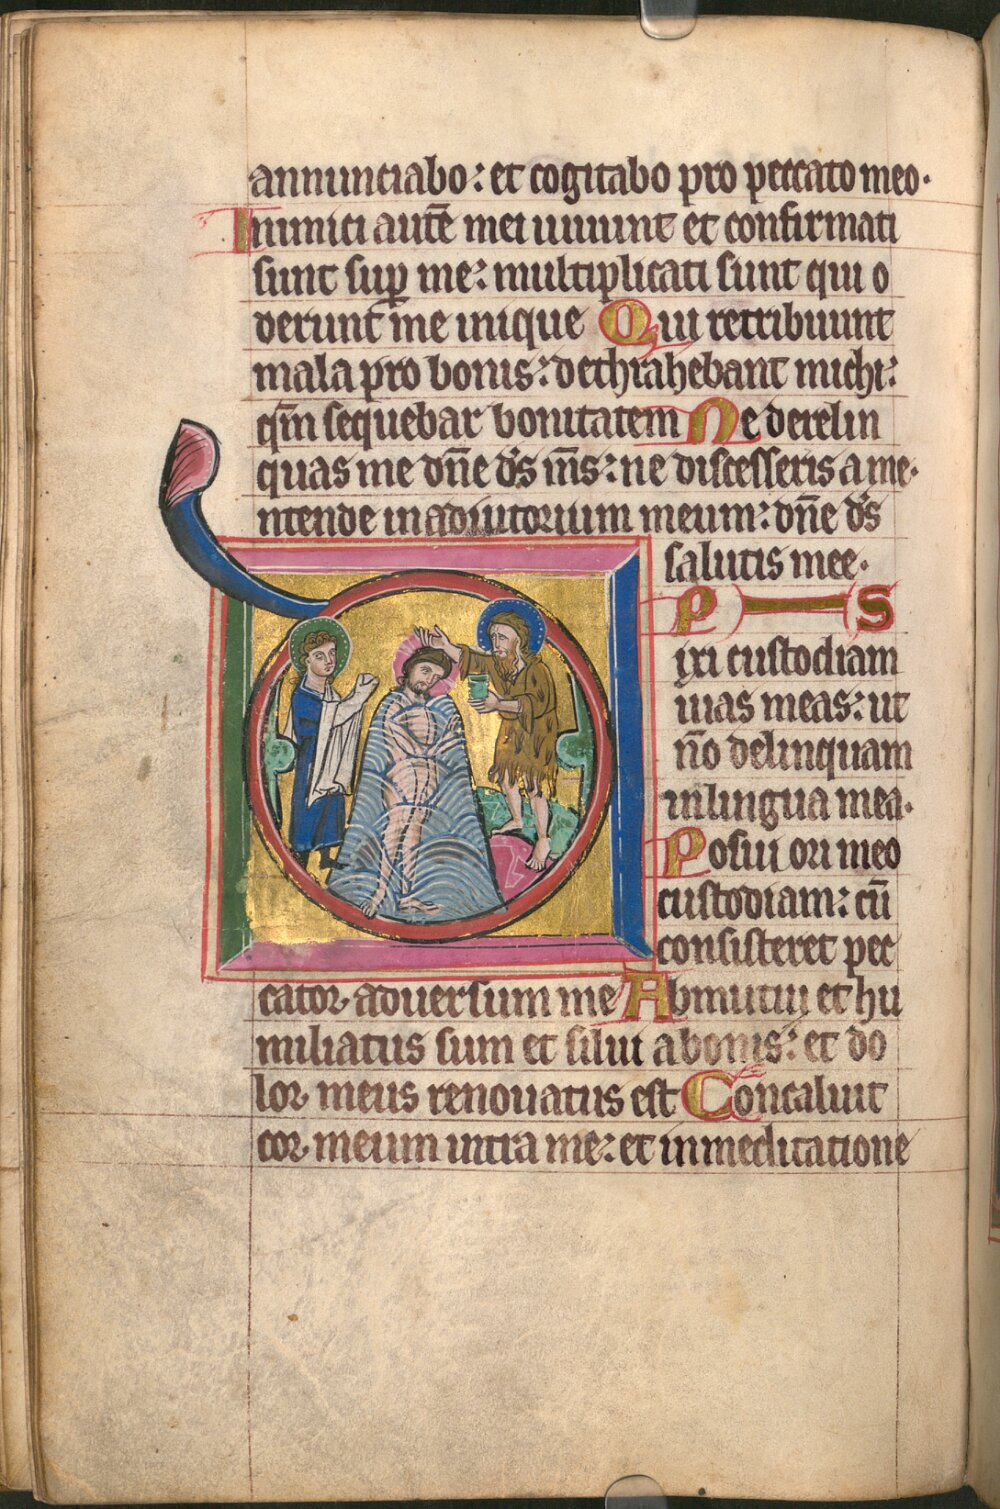 annunciabo: et cogitabo pro peccato meo.
Inimici autē mei uiuunt et confirmati
sunt sup me: multiplicati sunt qui o
derunt me inique Qui retribuunt
mala pro bonis: dethrahebant michi:
qm̄ sequebar bonitatem Ne derelin
quas me dn̄e ds̄ ms̄: ne discesseris a me.
ntende in adiutorium meum: dn̄e ds̄
salutis mee.
P S
D
ixi custodiam
uias meas: ut
nō delinquam
in lingua mea.
Posui ori meo
custodiam: cū
consisteret pec
cator aduersum me Abmutui et hu
miliatus sum et silui a bonis: et do
lor meus renouatus est Concaluit
cor meum intra me: et in meditatione